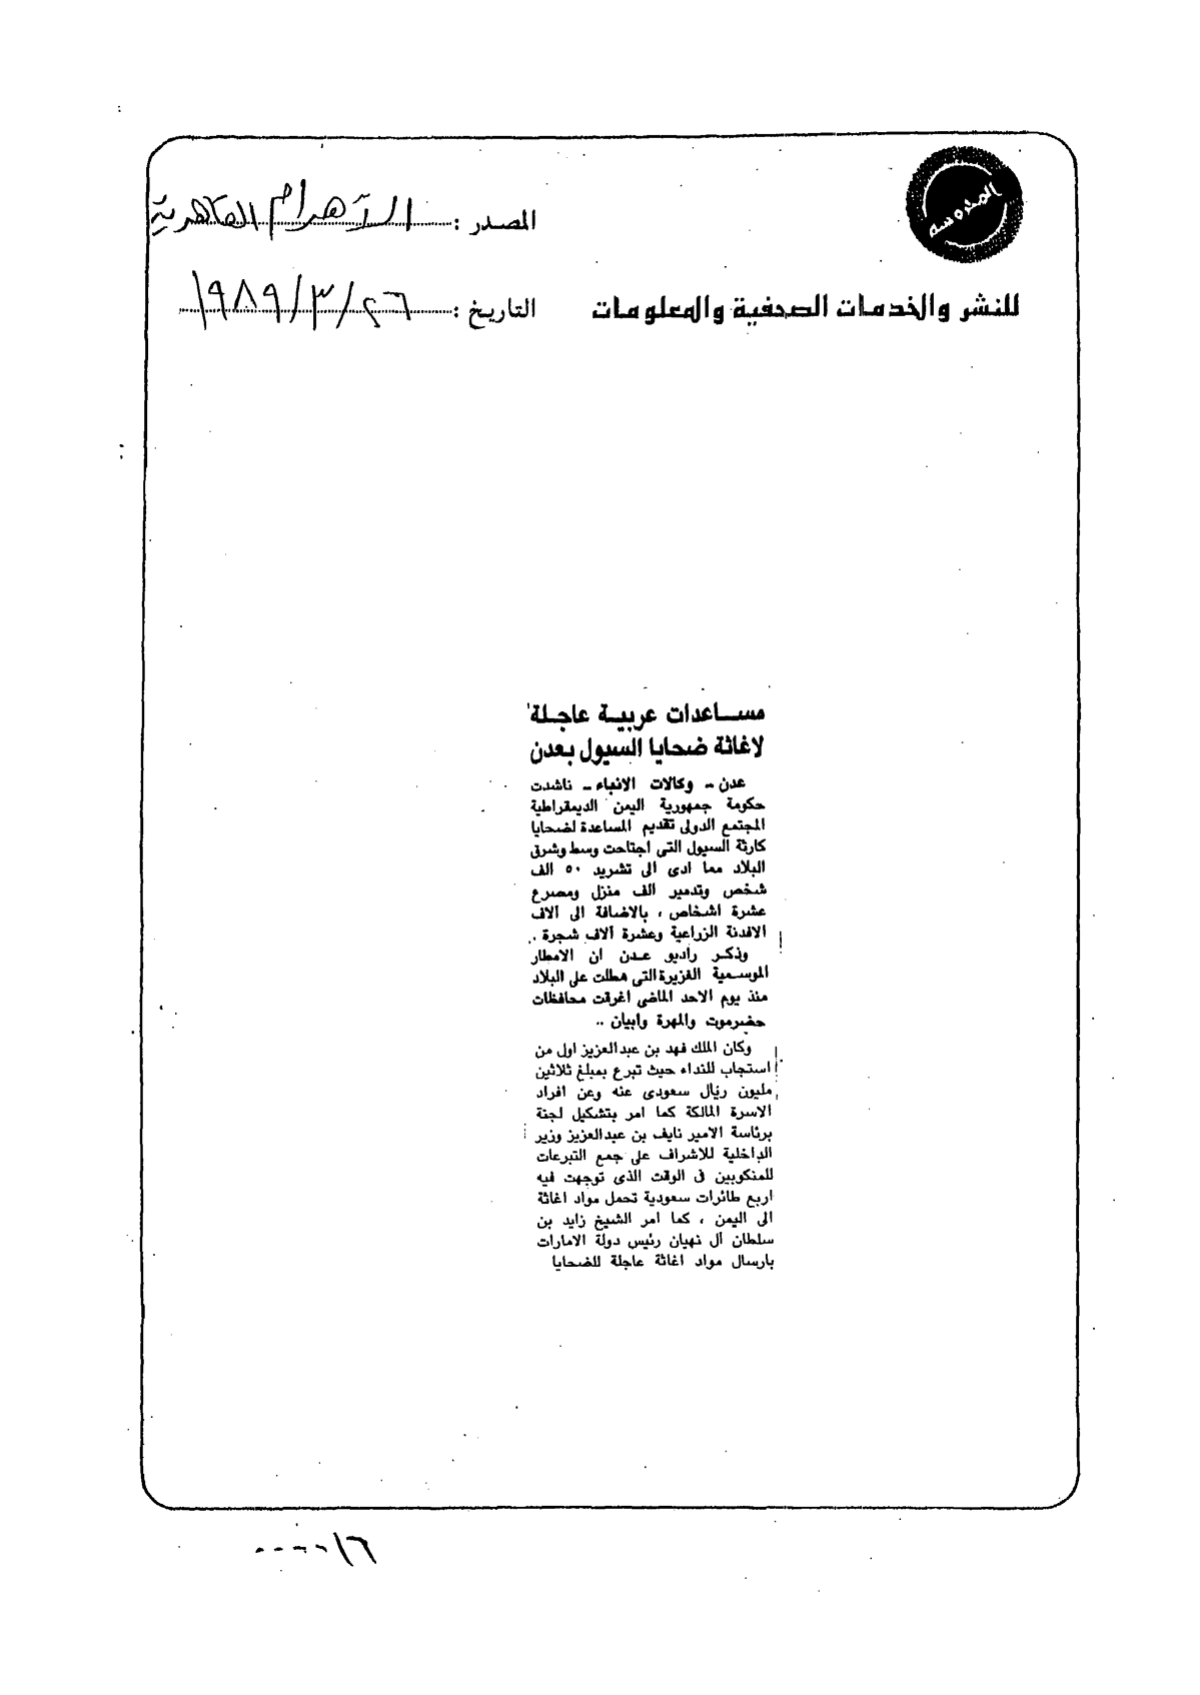 المحروسة
المصدر : الأهرام القاهرية
للنشر والخدمات الصحفية والمعلومات
التاريخ : ٢٦ / ٣ / ١٩٨٩
مساعدات عربية عاجلة
لاغاثة ضحايا السيول بعدن
عدن - وكالات الانباء - ناشدت
حكومة جمهورية اليمن الديمقراطية
المجتمع الدولى تقديم المساعدة لضحايا
كارثة السيول التى اجتاحت وسط وشرق
البلاد مما ادى الى تشريد ٥٠ الف
شخص وتدمير الف منزل ومصرع
عشرة اشخاص ، بالاضافة الى آلاف
الافدنة الزراعية وعشرة آلاف شجرة ..
وذكر راديو عدن ان الامطار
الموسمية الغزيرة التى هطلت على البلاد
منذ يوم الاحد الماضى اغرقت محافظات
حضرموت والمهرة وابيان ..
وكان الملك فهد بن عبدالعزيز اول من
استجاب للنداء حيث تبرع بمبلغ ثلاثين
مليون ريال سعودى عنه وعن افراد
الاسرة المالكة كما امر بتشكيل لجنة
برئاسة الامير نايف بن عبدالعزيز وزير
الداخلية للاشراف على جمع التبرعات
للمنكوبين فى الوقت الذى توجهت فيه
اربع طائرات سعودية تحمل مواد اغاثة
الى اليمن ، كما امر الشيخ زايد بن
سلطان آل نهيان رئيس دولة الامارات
بارسال مواد اغاثة عاجلة للضحايا